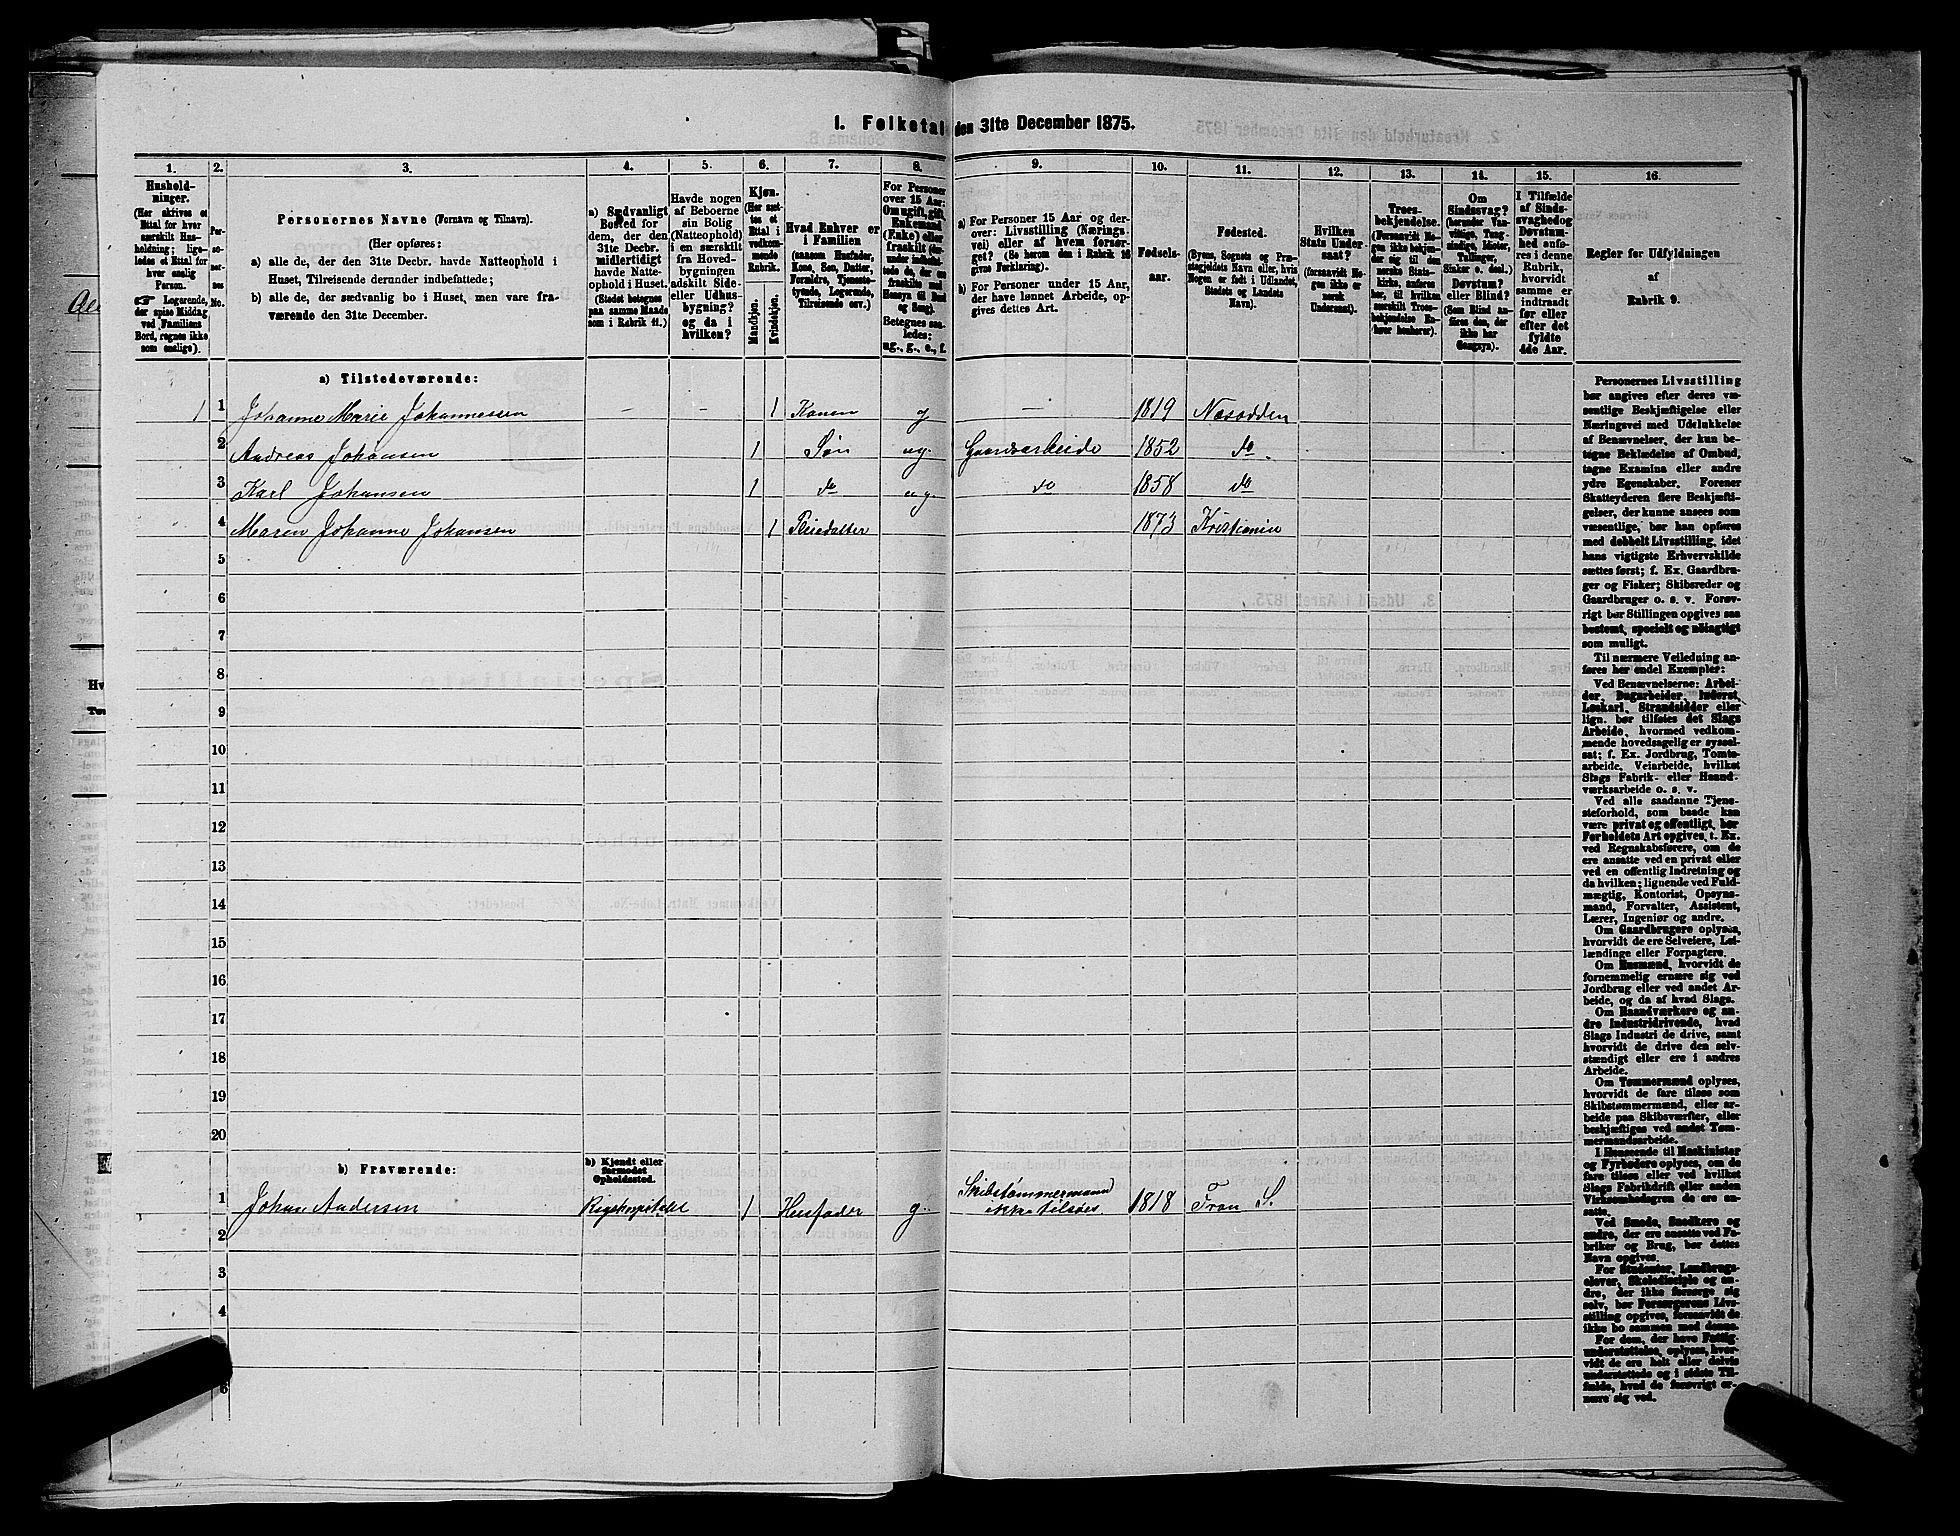 1. Folketal
den 31te December 1875.
1.
Hushold-
ninger.
(Her skrives et
Ettal for hver
særskilt Hus-
holdning; lige-
ledes et Ettal for
hver enslig
Person.
Logerende,
der spise Middag
ved Familiens
Bord, regnes ikke
som enslige).
2.
Per-
so-
ner-
nes
No.
3.
Personernes Navne (Fornavn og Tilnavn).
(Her opføres:
a) alle de, der den 31te Decbr. havde Natteophold i
Huset, Tilreisende derunder indbefattede;
b) alle de, der sædvanlig bo i Huset, men vare fra-
værende den 31te December.
4.
a) Sædvanligt
Bosted for
dem, der den
31te Decbr.
midlertidigt
havde Natte-
ophold i Huset.
(Stedet betegnes
paa samme Maade
som i Rubrik 11.)
5.
Havde nogen
af Beboerne
sin Bolig
(Natteophold)
i en særskilt
fra Hoved-
bygningen
adskilt Side-
eller Udhus-
bygning?
og da i
hvilken?
6.
Kjøn.
(Her sæt-
tes et
Ettal i
vedkom-
mende
Rubrik.
Mandkjøn.
Kvindekjøn.
7.
Hvad Enhver er
i Familien
(saasom Husfader,
Kone, Søn, Datter,
Forældre, Tjeneste-
tyende, Logerende,
Tilreisende osv.)
8.
For Personer
over 15 Aar:
Om ugift, gift,
Enkemand
(Enke) eller
fraskilt
Betegnes saa-
ledes:
ug., g., e., f.
9.
a) For Personer 15 Aar og der-
over: Livsstilling (Nærings-
vei) eller af hvem forsør-
get? (Se herom den i Rubrik 16
givne Forklaring).
b) For Personer under 15 Aar,
der have lønnet Arbeide, op-
gives dettes Art.
10.
Fødsels-
aar.
11.
Fødested.
(Byens, Sognets og Præ-
stegjeldets Navn eller, hvis
Nogen er født i Udlandet,
Stedets og Landets
Navn).
12.
Hvilken
Stats Under-
saat?
(forsaavidt No-
gen ikke er
norsk
Undersaat).
13.
Troes-
bekjendelse.
(Forsaavidt No-
gen ikke bekjen-
der sig til den
norske Stats-
kirke, anføres
her, til hvilken
særskilt Troes-
bekjendelse En-
hver henhører).
14.
Om
Sindssvag?
(herunder Van-
vittige, Tung-
sindige, Idioter,
Tullinger,
Sinker o. desl.)
Døvstum?
eller Blind?
(Som Blind an-
føres den, der
ikke har
Gangsyn).
15.
I Tilfælde
af Sinds-
svaghed og
Døvstum-
hed anfø-
res i denne
Rubrik,
hvorvidt
samme er
indtraadt
før eller
efter det
fyldte
4de Aar.
16.
Regler for Udfyldningen
af
Rubrik 9.
a) Tilstedeværende:
1 1 Johanne Marie Johannessen – – 1 Konen g — 1819 Nesodden
2 Andreas Johansen 1 Søn ug. Gaardsarbeide 1852 do.
3 Karl Johansen 1 do ug do 1858 do
4 Maren Johanne Johansen 1 Pleiedatter 1873 Kristiania
5
6
7
8
9
10
11
12
13
14
15
16
17
18
19
20
b) Fraværende:
b) Kjendt eller
formodet
Opholdssted.
1 Johan Andersen Rigshospitalet 1 Husfader g. Skibstømmermand
ikke tilsøes 1818 Tron S.
2
3
4
6
Personernes Livsstilling
bør angives efter deres væ-
sentlige Beskjæftigelse eller
Næringsvei med Udelukkelse
af Benævnelser, der kun be-
tegne Beklædelse af Ombud,
tagne Examina eller andre
ydre Egenskaber. Forener
Skatteyderen flere Beskjæfti-
gelser, der kunne ansees som
væsentlige, bør han opføres
med dobbelt Livsstilling, idet
hans vigtigste Erhvervskilde
sættes først; f. Ex. Gaardbru-
ger og Fisker; Skibsreder og
Gaardbruger o. s. v. Forøv-
rigt bør Stillingen opgives saa
bestemt, specielt og nøiagtigt
som muligt.
Til nærmere Veiledning an-
føres her endel Exempler:
Ved Benævnelserne: Arbei-
der, Dagarbeider, Inderst,
Løskarl, Strandsidder eller
lign. bør tilføies det Slags
Arbeide, hvormed vedkom-
mende hovedsagelig er syssel-
sat; f. Ex. Jordbrug, Tomte-
arbeide, Veiarbeide, hvilket
Slags Fabrik- eller Haand-
værksarbeide o. s. v.
Ved alle saadanne Tjene-
steforhold, som baade kan
være privat og offentligt, bør
Forholdets Art opgives, t. Ex.
ved Regnskabsførere, om de
ere ansatte ved en privat eller
ved en offentlig Indretning og
da hvilken; lignende ved Fuld-
mægtig, Kontorist, Opsyns-
mand, Forvalter, Assistent,
Lærer, Ingeniør og andre.
Om Gaardbrugere oplyses,
hvorvidt de ere Selveiere, Lei-
lændinge eller Forpagtere.
Om Husmænd, hvorvidt de
fornemmelig ernære sig ved
Jordbrug eller ved andet Ar-
beide, og da af hvad Slags.
Om Haandværkere og an-
dre Industridrivende, hvad
Slags Industri de drive, samt
hvorvidt de drive den selv-
stændigt eller ere i andres
Arbeide.
Om Tømmermænd oplyses,
hvorvidt de fare tilsøs som
Skibstømmermænd, eller ar-
beide paa Skibsværfter, eller
beskjæftiges ved andet Tøm-
mermandsarbeide.
I Henseende til Maskinister
og Fyrbødere oplyses, om de
fare tilsøs eller ved hvilket
Slags Fabrikdrift eller anden
Virksomhed de ere an-
satte.
Ved Smede, Snedkere og
andre, der ere ansatte ved Fa-
briker og Brug, bør dettes
Navn opgives.
For Studenter, Landbrugs-
elever, Skoledisciple og an-
dre, der ikke forsørge sig
selv, bør Forsørgerens Livs-
stilling opgives, forsaavidt de
ikke bo sammen med denne.
For dem, der have Fattig-
understøttelse, oplyses, hvor-
vidt de ere helt eller delvis
understøttede og i sidste Til-
fælde, hvad de forøvrigt er-
nære sig ved.